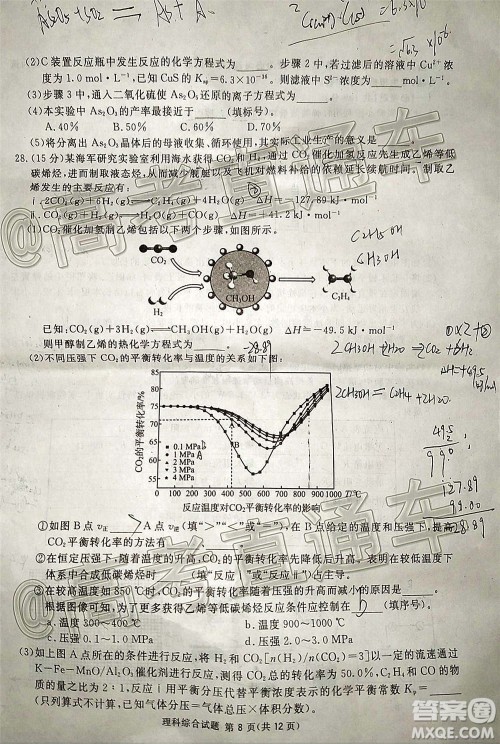 As₂O₃+SO₂ =
(2)C装置反应瓶中发生反应的化学方程式为____。步骤2中,若过滤后的溶液中Cu²⁺浓
度为1.0 mol·L⁻¹,已知CuS的Ksp=6.3×10⁻³⁶。则滤液中S²⁻浓度为____。
(3)步骤3中,通入二氧化硫使As₂O₅还原的离子方程式为____。
(4)本实验中As₂O₃的产率最接近于____(填标号)。
A. 40% B. 50% C. 60% D. 70%
(5)将分离出As₂O₃晶体后的母液收集、循环使用,其实际工业生产的意义是____。
28.(15分)某海军研究实验室利用海水获得CO₂和H₂,通过CO₂催化加氢反应先生成乙烯等低
碳烯烃,进而制取液态烃,从而减少舰艇以及飞机对燃料补给的依赖及时间。制取乙
烯发生的主要反应有:
ⅰ. 2CO₂(g)+6H₂(g)⇌C₂H₄(g)+4H₂O(g) ΔH=-127.89 kJ·mol⁻¹
ⅱ. CO₂(g)+H₂(g)⇌CO(g)+H₂O(g) ΔH=+41.2 kJ·mol⁻¹
(1)CO₂催化加氢制乙烯包括以下两个步骤,如图所示。
C₂H₅OH
CH₃OH
CO₂
H₂
CH₃OH
C₂H₄
已知:CO₂(g)+3H₂(g)⇌CH₃OH(g)+H₂O(g) ΔH=-49.5 kJ·mol⁻¹
则甲醇制乙烯的热化学方程式为____。
-28.89
(2)不同压强下CO₂的平衡转化率与温度的关系如图:
2CH₃OH=C₂H₄+2H₂O
CO₂的平衡转化率/%
80
75
70
65
60
55
0.1 MPa
1 MPa
2 MPa
3 MPa
4 MPa
A
B
0 100 200 300 400 500 600 700 800 900 1000 T/℃
反应温度对CO₂平衡转化率的影响
49.5
2
99.0
127.89
99.00
28.89
①如图B点v正____A点v逆(填“>”“<”或“=”),在B点给定的温度和压强下,提高
CO₂平衡转化率的方法有____。
②在恒定压强下,随着温度的升高,CO₂的平衡转化率先降低后升高。表明在较低温度下
体系中合成低碳烯烃时____(填“反应ⅰ”或“反应ⅱ”)占主导。
③在较高温度如850℃时,CO₂的平衡转化率随着压强的升高而减小的原因是____。
根据图像可知,为了更多获得乙烯等低碳烯烃反应条件应控制在____(填序号)。
a.温度300~400℃ b.温度900~1000℃
c.压强0.1~1.0 MPa d.压强1.0~2.0 MPa
(3)如上图A点所在的条件进行反应,将H₂和CO₂[n(H₂)/n(CO₂)=3]以一定的流速通过
K—Fe—MnO/Al₂O₃催化剂进行反应,测得CO₂总转化率为50.0%,C₂H₄和CO的物
质的量之比为2:1,反应ⅰ用平衡分压代替平衡浓度表示的化学平衡常数Kp=____
(只列算式不计算,已知:气体分压=气体总压×体积分数)。
理科综合试题 第8页(共12页)
高考直通车
高考直通车
答案圈
MXQE.COM